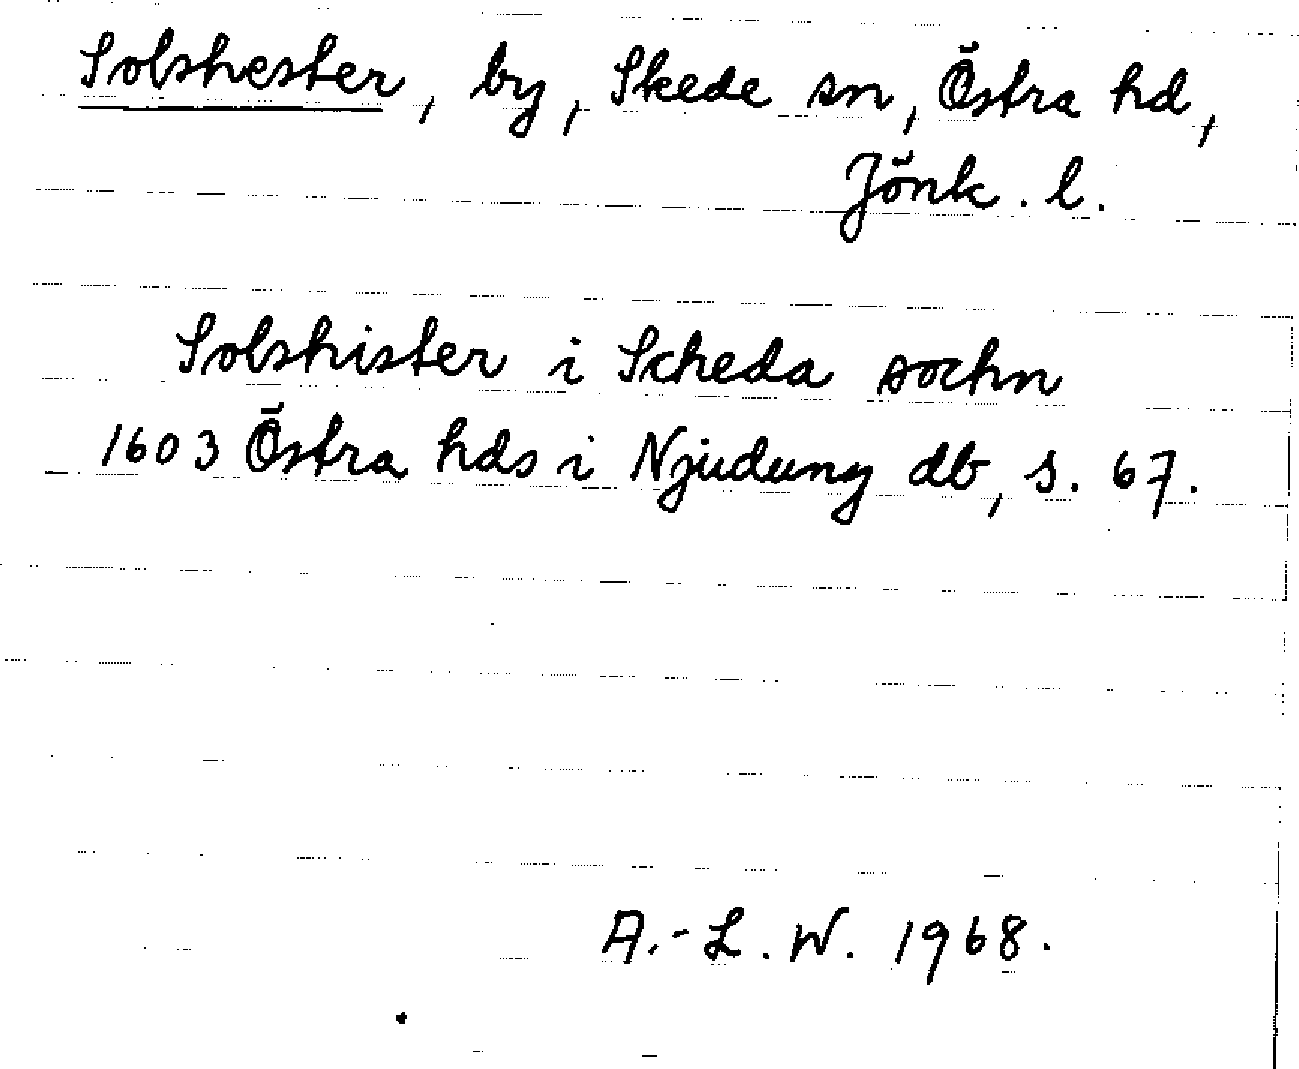 Solshester, by, Skede sn, Östra hd,
Jönk. l.
Solshister i Scheda sochn
1603 Östra hds i Njudung db, s. 67.
A.-L. W. 1968.